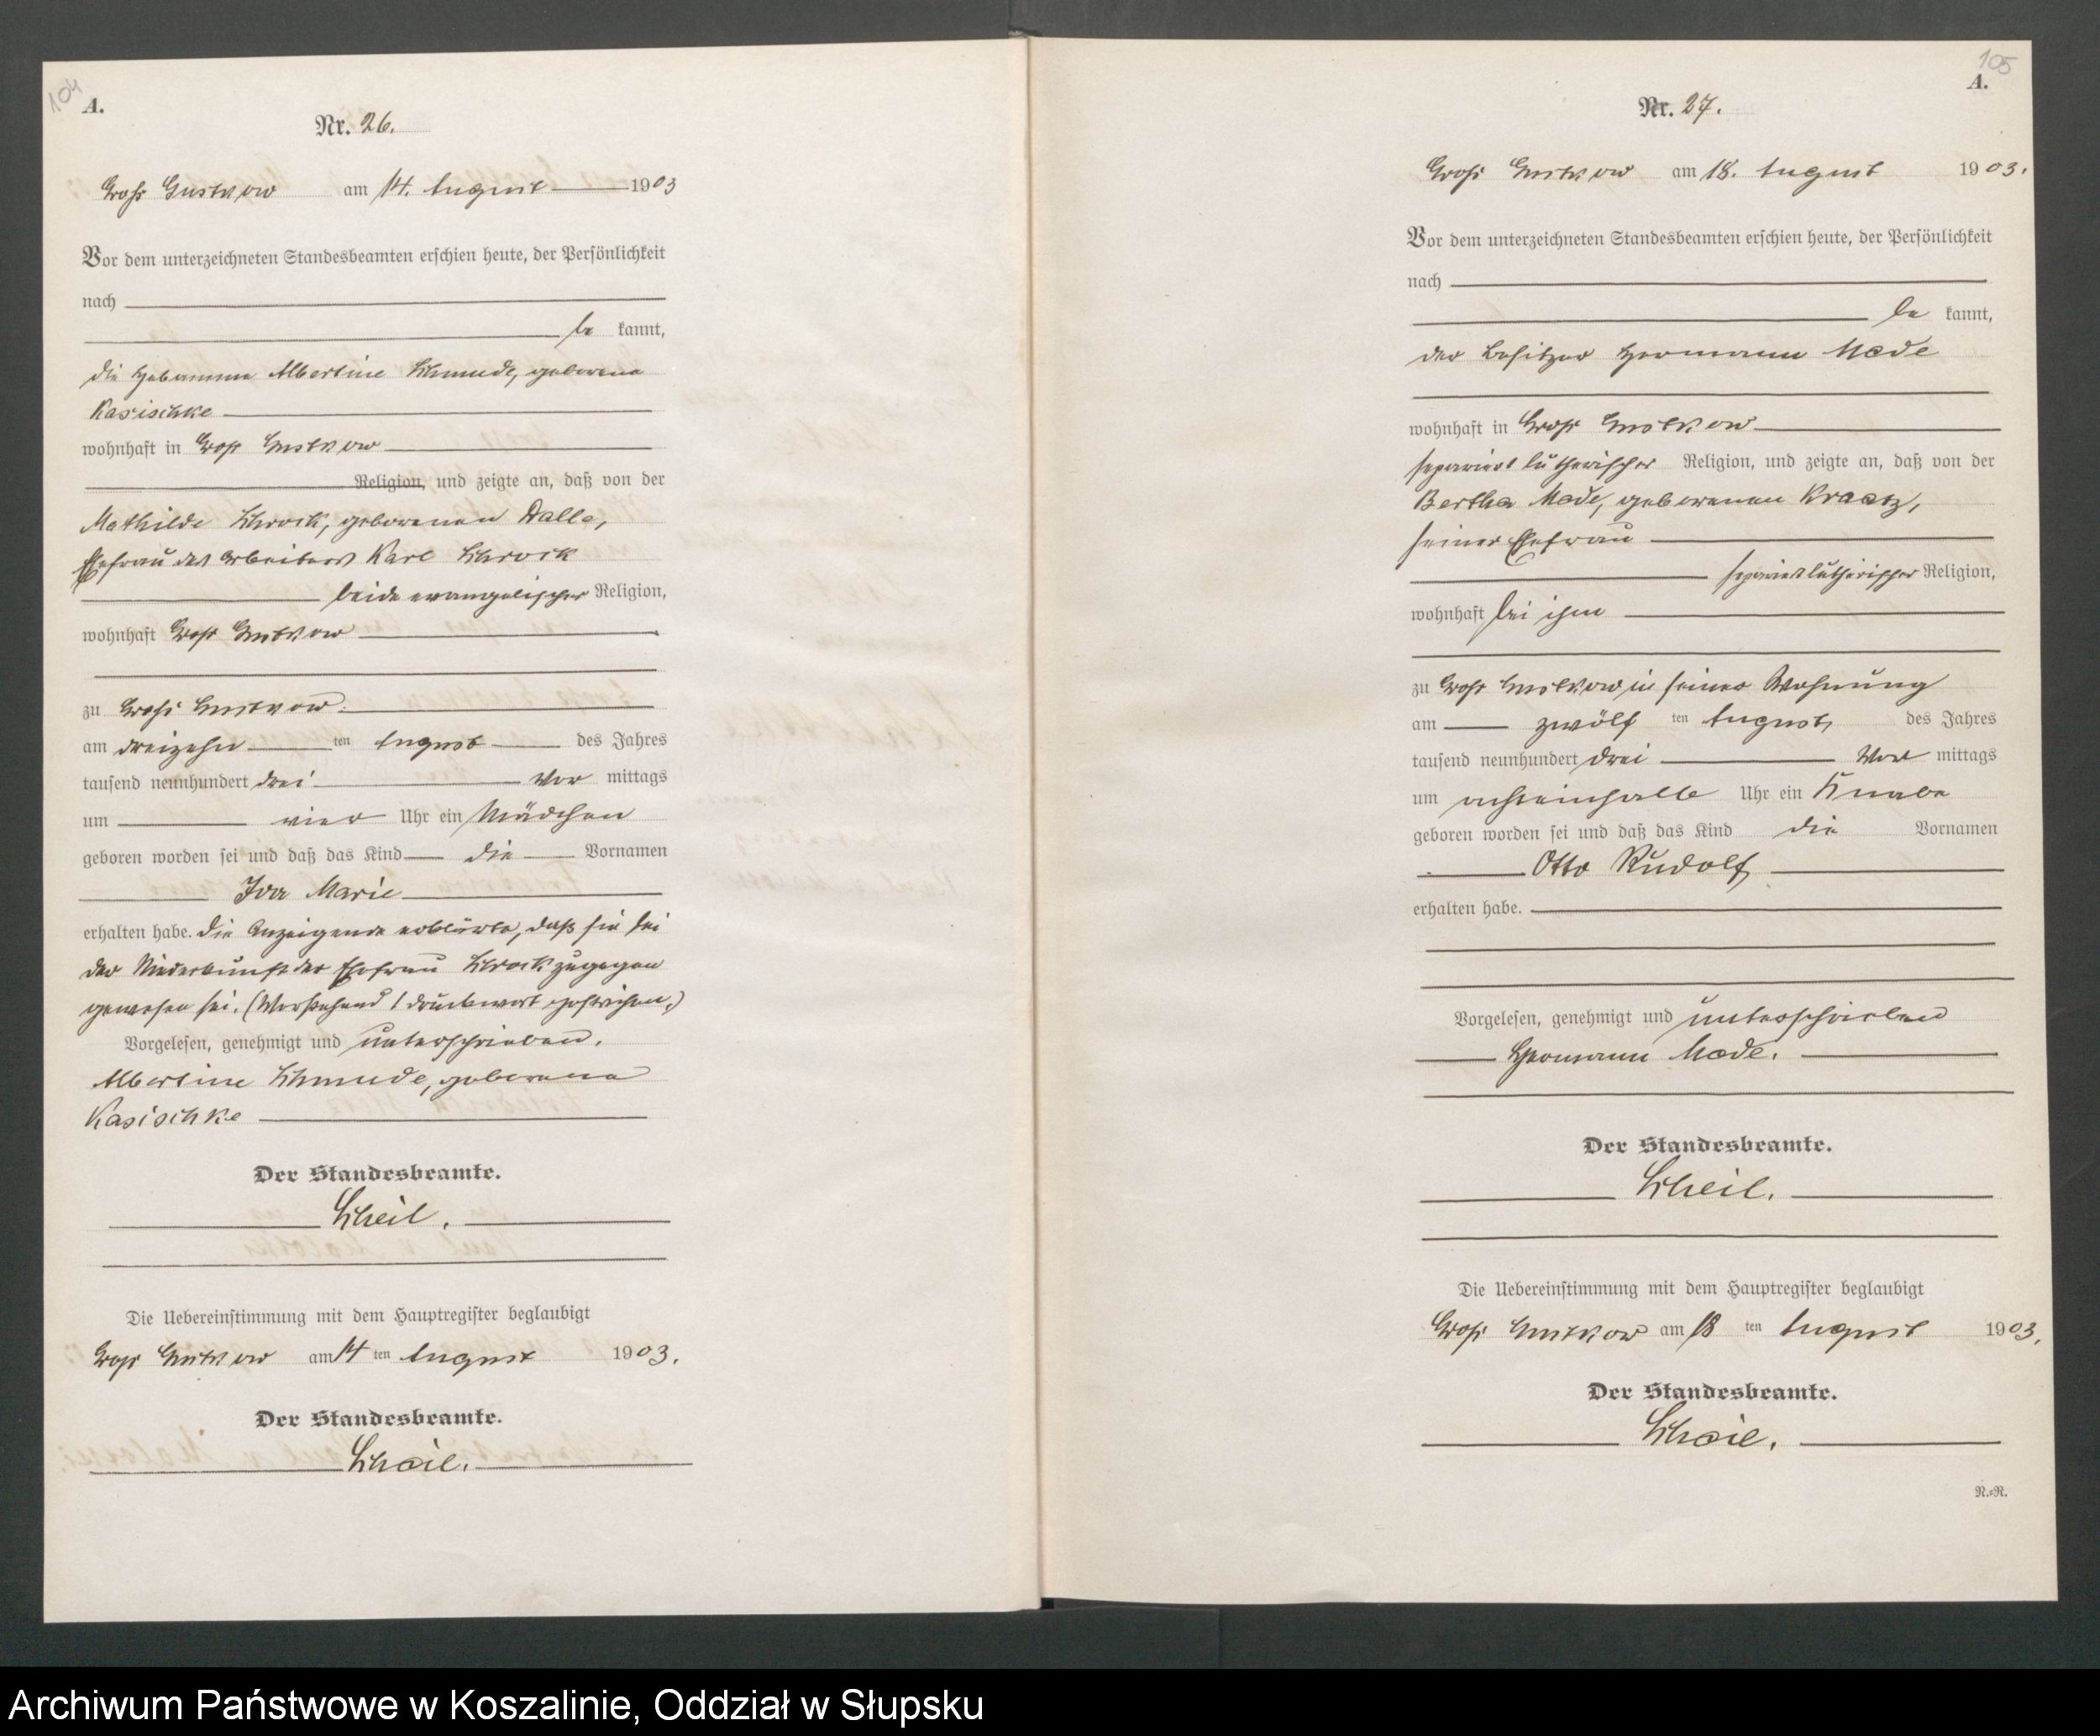 104
A.
Nr. 26.
Groß Gustkow am 14. August 1903
Vor dem unterzeichneten Standesbeamten erschien heute, der Persönlichkeit
nach
be kannt,
die Hebamme Albertine Schmude, geborene
Kasischke
wohnhaft in Groß Gustkow
Religion, und zeigte an, daß von der
Mathilde Schrock, geborenen Dalle,
Ehefrau des Arbeiters Karl Schrock
beide evangelischer Religion,
wohnhaft Groß Gustkow
zu Groß Gustkow
am dreizehn ten August des Jahres
tausend neunhundert drei Vor mittags
um vier Uhr ein Mädchen
geboren worden sei und daß das Kind die Vornamen
Ida Marie
erhalten habe. Die Anzeigende erklärte, daß sie bei
der Niederkunft der Ehefrau Schrock zugegen
gewesen sei. (Vorstehend 1 Druckwort gestrichen.)
Vorgelesen, genehmigt und unterschrieben.
Albertine Schmude, geborene
Kasischke
Der Standesbeamte.
Scheil.
Die Uebereinstimmung mit dem Hauptregister beglaubigt
Groß Gustkow am 14 ten August 1903.
Der Standesbeamte.
Scheil.
105
A.
Nr. 27.
Groß Gustkow am 18. August 1903.
Vor dem unterzeichneten Standesbeamten erschien heute, der Persönlichkeit
nach
be kannt,
der Besitzer Hermann Mode
wohnhaft in Groß Gustkow
separiert lutherischer Religion, und zeigte an, daß von der
Bertha Mode, geborenen Kraatz,
seiner Ehefrau
separiert lutherischer Religion,
wohnhaft bei ihm
zu Groß Gustkow in seiner Wohnung
am zwölf ten August, des Jahres
tausend neunhundert drei Vor mittags
um achteinhalb Uhr ein Knabe
geboren worden sei und daß das Kind die Vornamen
Otto Rudolf
erhalten habe.
Vorgelesen, genehmigt und unterschrieben
Hermann Mode.
Der Standesbeamte.
Scheil.
Die Uebereinstimmung mit dem Hauptregister beglaubigt
Groß Gustkow am 18 ten August 1903.
Der Standesbeamte.
Scheil.
N.=R.
Archiwum Państwowe w Koszalinie, Oddział w Słupsku